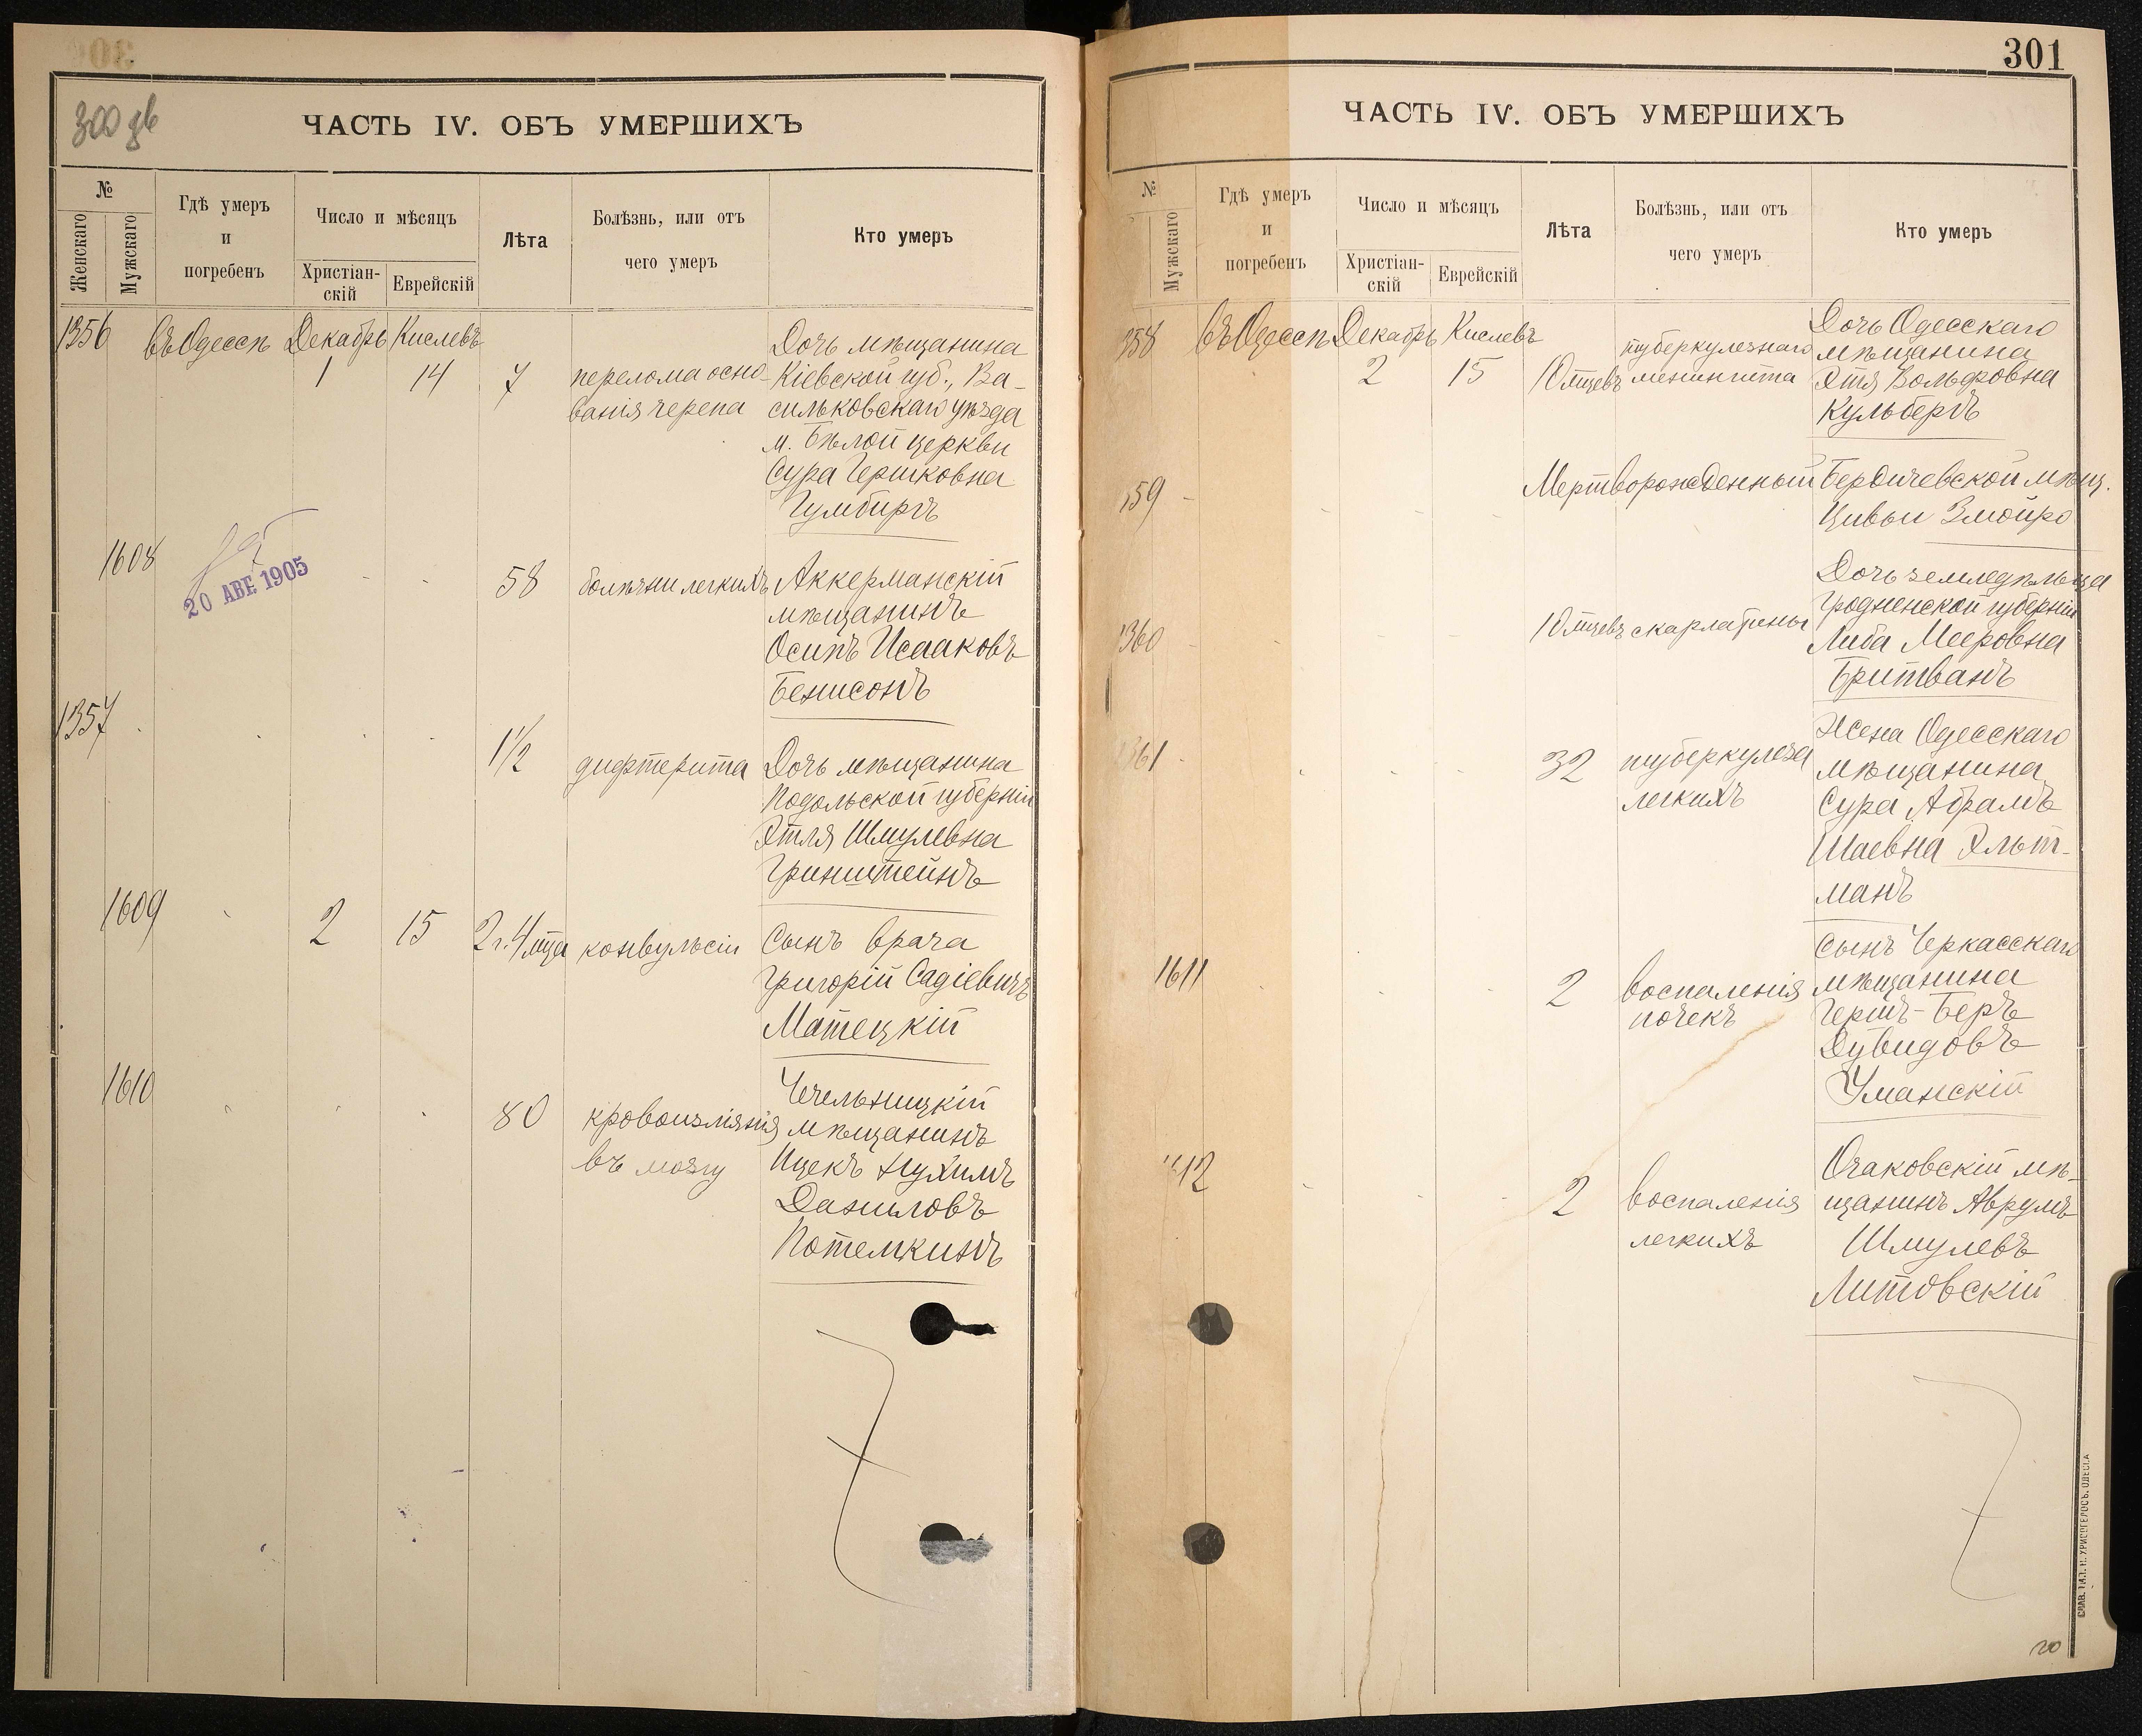 300 дв
ЧАСТЬ IV. ОБЪ УМЕРШИХЪ
№
Женскаго
Мужскаго
Гдѣ умеръ
и
погребенъ
Число и мѣсяцъ
Христіан-
скій
Еврейскій
Лѣта
Болѣзнь, или отъ
чего умеръ
Кто умеръ
1356 въ Одессѣ Декабрь Кислевъ
1 14 7
перелома осно-
ванія черепа
Дочь мѣщанина
Кіевской губ., Ва-
сильковскаго уѣзда
м. Бѣлой церкви
Сура Гершковна
Гумбиръ
1608
20 АВГ 1905
58
болѣзни легкихъ
Аккерманскій
мѣщанинъ
Осипъ Исааковъ
Бенисонъ
1357
1½
дифтерита
Дочь мѣщанина
Подольской губерніи
Этля Шмулевна
Гринштейнъ
1609
2 15 2 г. 4 мца
конвульсіи
Сынъ врача
Григорій Садіевичъ
Матецкій
1610
80
кровоизліянія
въ мозгу
Чечельницкій
мѣщанинъ
Ицекъ Нухимъ
Даниловъ
Потемкинъ
301
ЧАСТЬ IV. ОБЪ УМЕРШИХЪ
№
Мужскаго
Гдѣ умеръ
и
погребенъ
Число и мѣсяцъ
Христіан-
скій
Еврейскій
Лѣта
Болѣзнь, или отъ
чего умеръ
Кто умеръ
358 въ Одессѣ Декабрь Кислевъ
2 15 10 мцевъ
туберкулезнаго
менингита
Дочь Одесскаго
мѣщанина
Этя Вольфовна
Кульберъ
159
Мертворожденный
Бердичевской мѣщ.
Цивьи Змойро
1360
10 мцевъ
скарлатины
Дочь земледѣльца
Гродненской губерніи
Либа Мееровна
Бритванъ
1361
32
туберкулеза
легкихъ
Жена Одесскаго
мѣщанина
Сура Абрамъ
Шаевна Эльт-
манъ
1611
2
воспаленія
почекъ
Сынъ Черкасскаго
мѣщанина
Гершъ-Беръ
Дувидовъ
Уманскій
1612
2
воспаленія
легкихъ
Очаковскій мѣ-
щанинъ Аврумъ
Шмулевъ
Литовскій
СЛАВ. ТИП. Н. ХРИСОГЕЛОСЪ. ОДЕССА